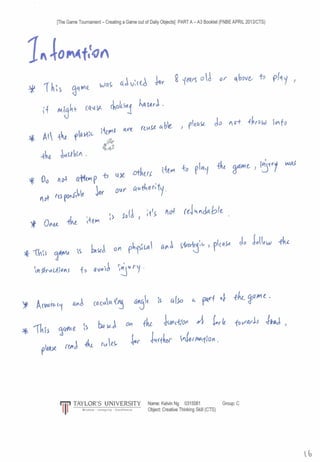 [The Game Tournament – Creating a Game out of Daily Objects]: PART A – A3 Booklet (FNBE APRIL 2013/CTS)
Information
* This game was adviced for 8 years old or above to play,
it might cause choking hazard.
* All the plastic items are reuse able, please do not throw into
the dustbin.
* Do not attemp to use others item to play the game, injury was
not responsible for our authority.
* Once the item is sold, it's not redundable.
* This game is based on physical and, please do follow the
instructions to avoid injury.
* Accuracy and cocolating angle is also a part of the game.
* This game is based on the function of fork towards food,
please read the rules for further information.
TAYLOR'S UNIVERSITY
Wisdom · Integrity · Excellence
Name: Kelvin Ng 0315081 Group: C
Object: Creative Thinking Skill (CTS)
16